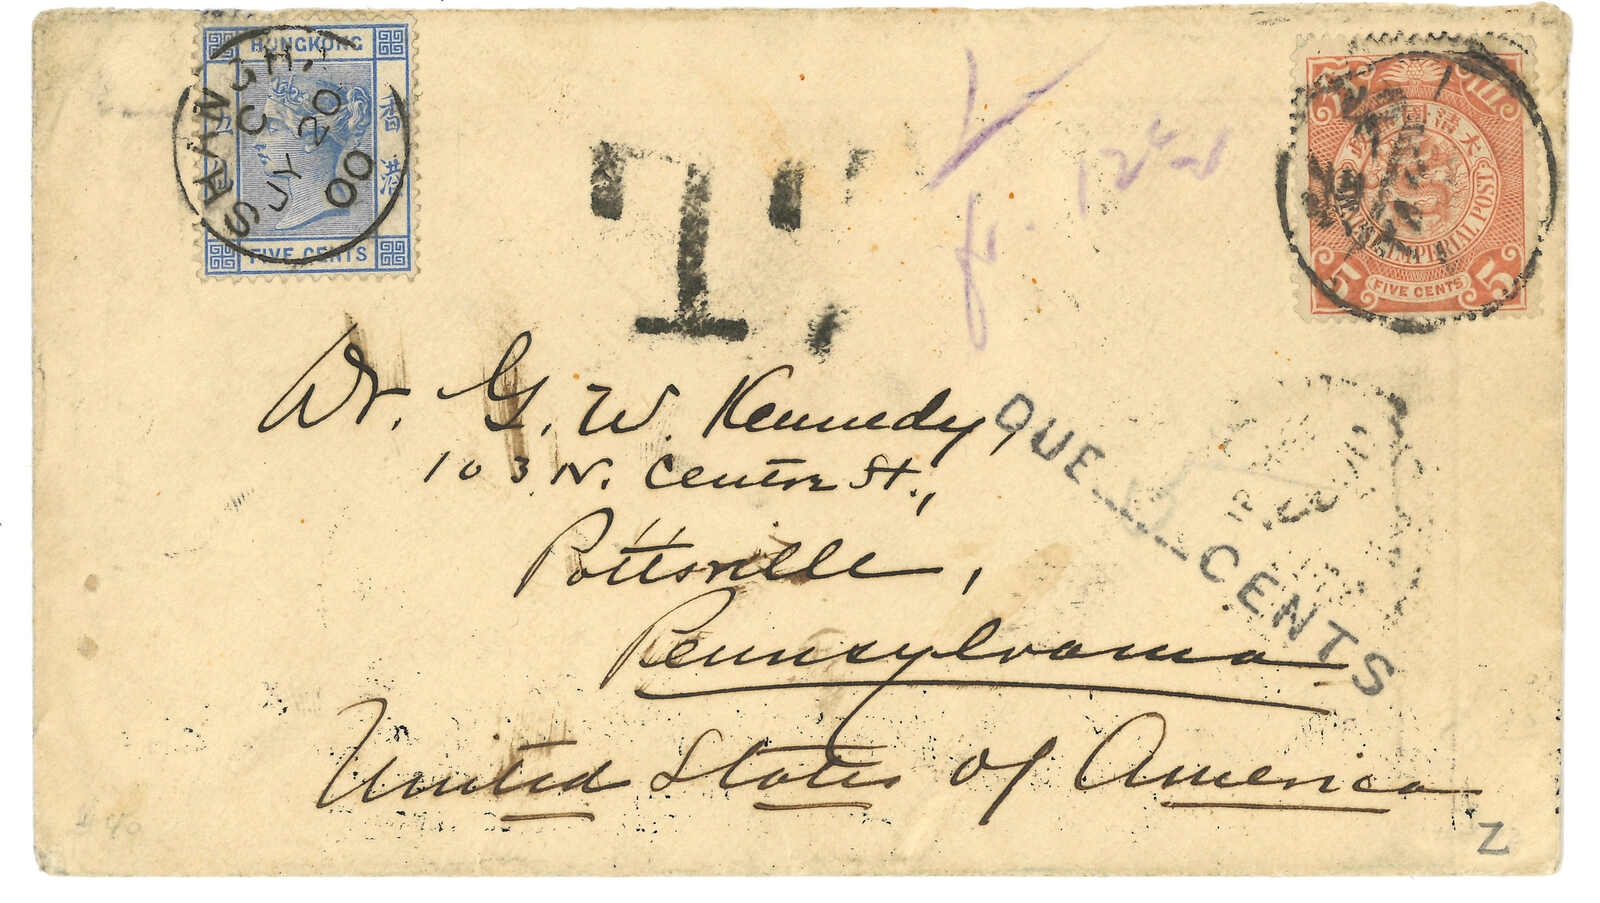 HONGKONG
香港
FIVE CENTS
SHANGHAI
JY 20
00
T
大清
IMPERIAL POST
5 FIVE CENTS 5
Dr. G. W. Kennedy,
103 N. Centre St.,
Pottsville,
Pennsylvania
United States of America
DUE CENTS
Z